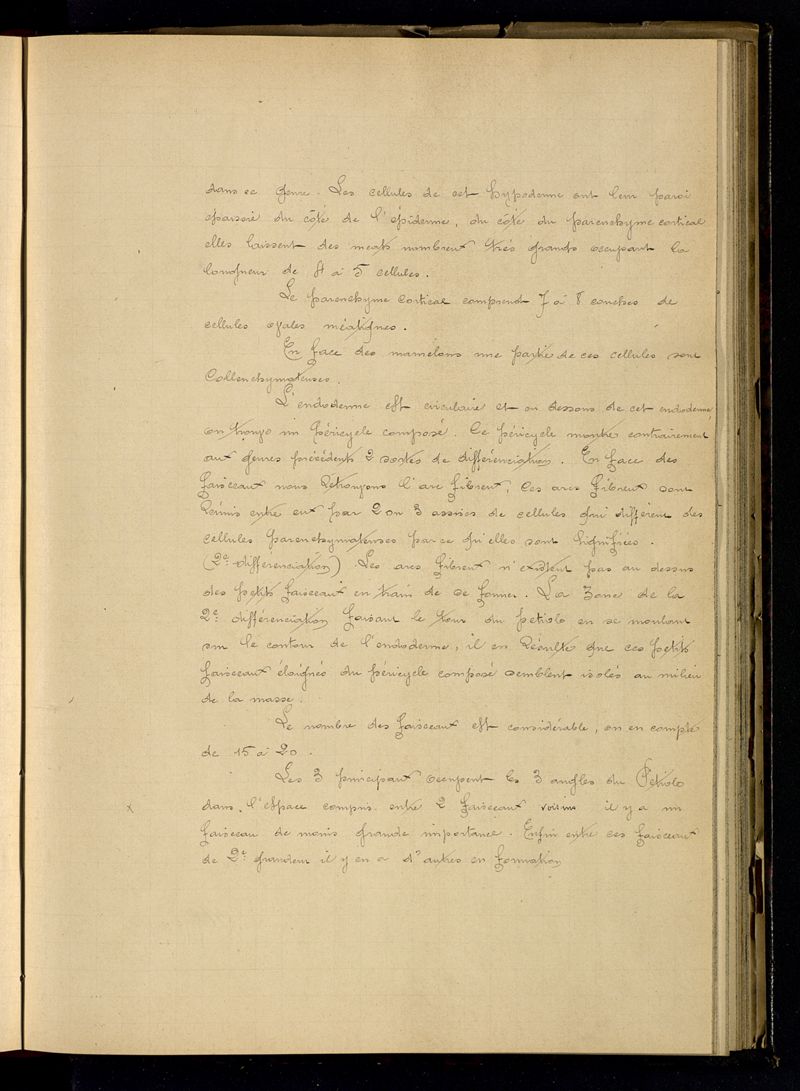 dans ce genre. Les cellules de cet hypoderme ont leur paroi
épaissie du côté de l'épiderme, du côté du parenchyme cortical
elles laissent des méats nombreux très grands occupant la
longueur de 4 à 5 cellules.
Le parenchyme cortical comprend 7 à 8 couches de
cellules ovales méatiques.
En face des mamelons une partie de ces cellules sont
Collenchymateuses.
L'endoderme est circulaire et en dessous de cet endoderme,
on trouve un péricycle composé. Ce péricycle montre contrairement
aux genres précédents 2 sortes de différenciation. En face des
faisceaux nous retrouvons l'arc fibreux, ces arcs fibreux sont
réunis entre eux par 2 ou 3 assises de cellules qui diffèrent des
cellules parenchymateuses parce qu'elles sont lignifiées.
(2e différenciation) Les arcs fibreux n'existent pas au dessus
des petits faisceaux en train de se former. La zone de la
2e différenciation faisant le tour du pétiole en se moulant
sur le contour de l'endoderme, il en résulte que ces petits
faisceaux éloignés du péricycle composé semblent isolés au milieu
de la masse.
Le nombre des faisceaux est considérable, on en compte
de 15 à 20.
Les 3 principaux occupent les 3 angles du Pétiole
x dans l'espace compris entre 2 faisceaux voisins il y a un
faisceau de moins grande importance. Enfin entre ces faisceaux
de 2e grandeur il y en a d'autres en formation